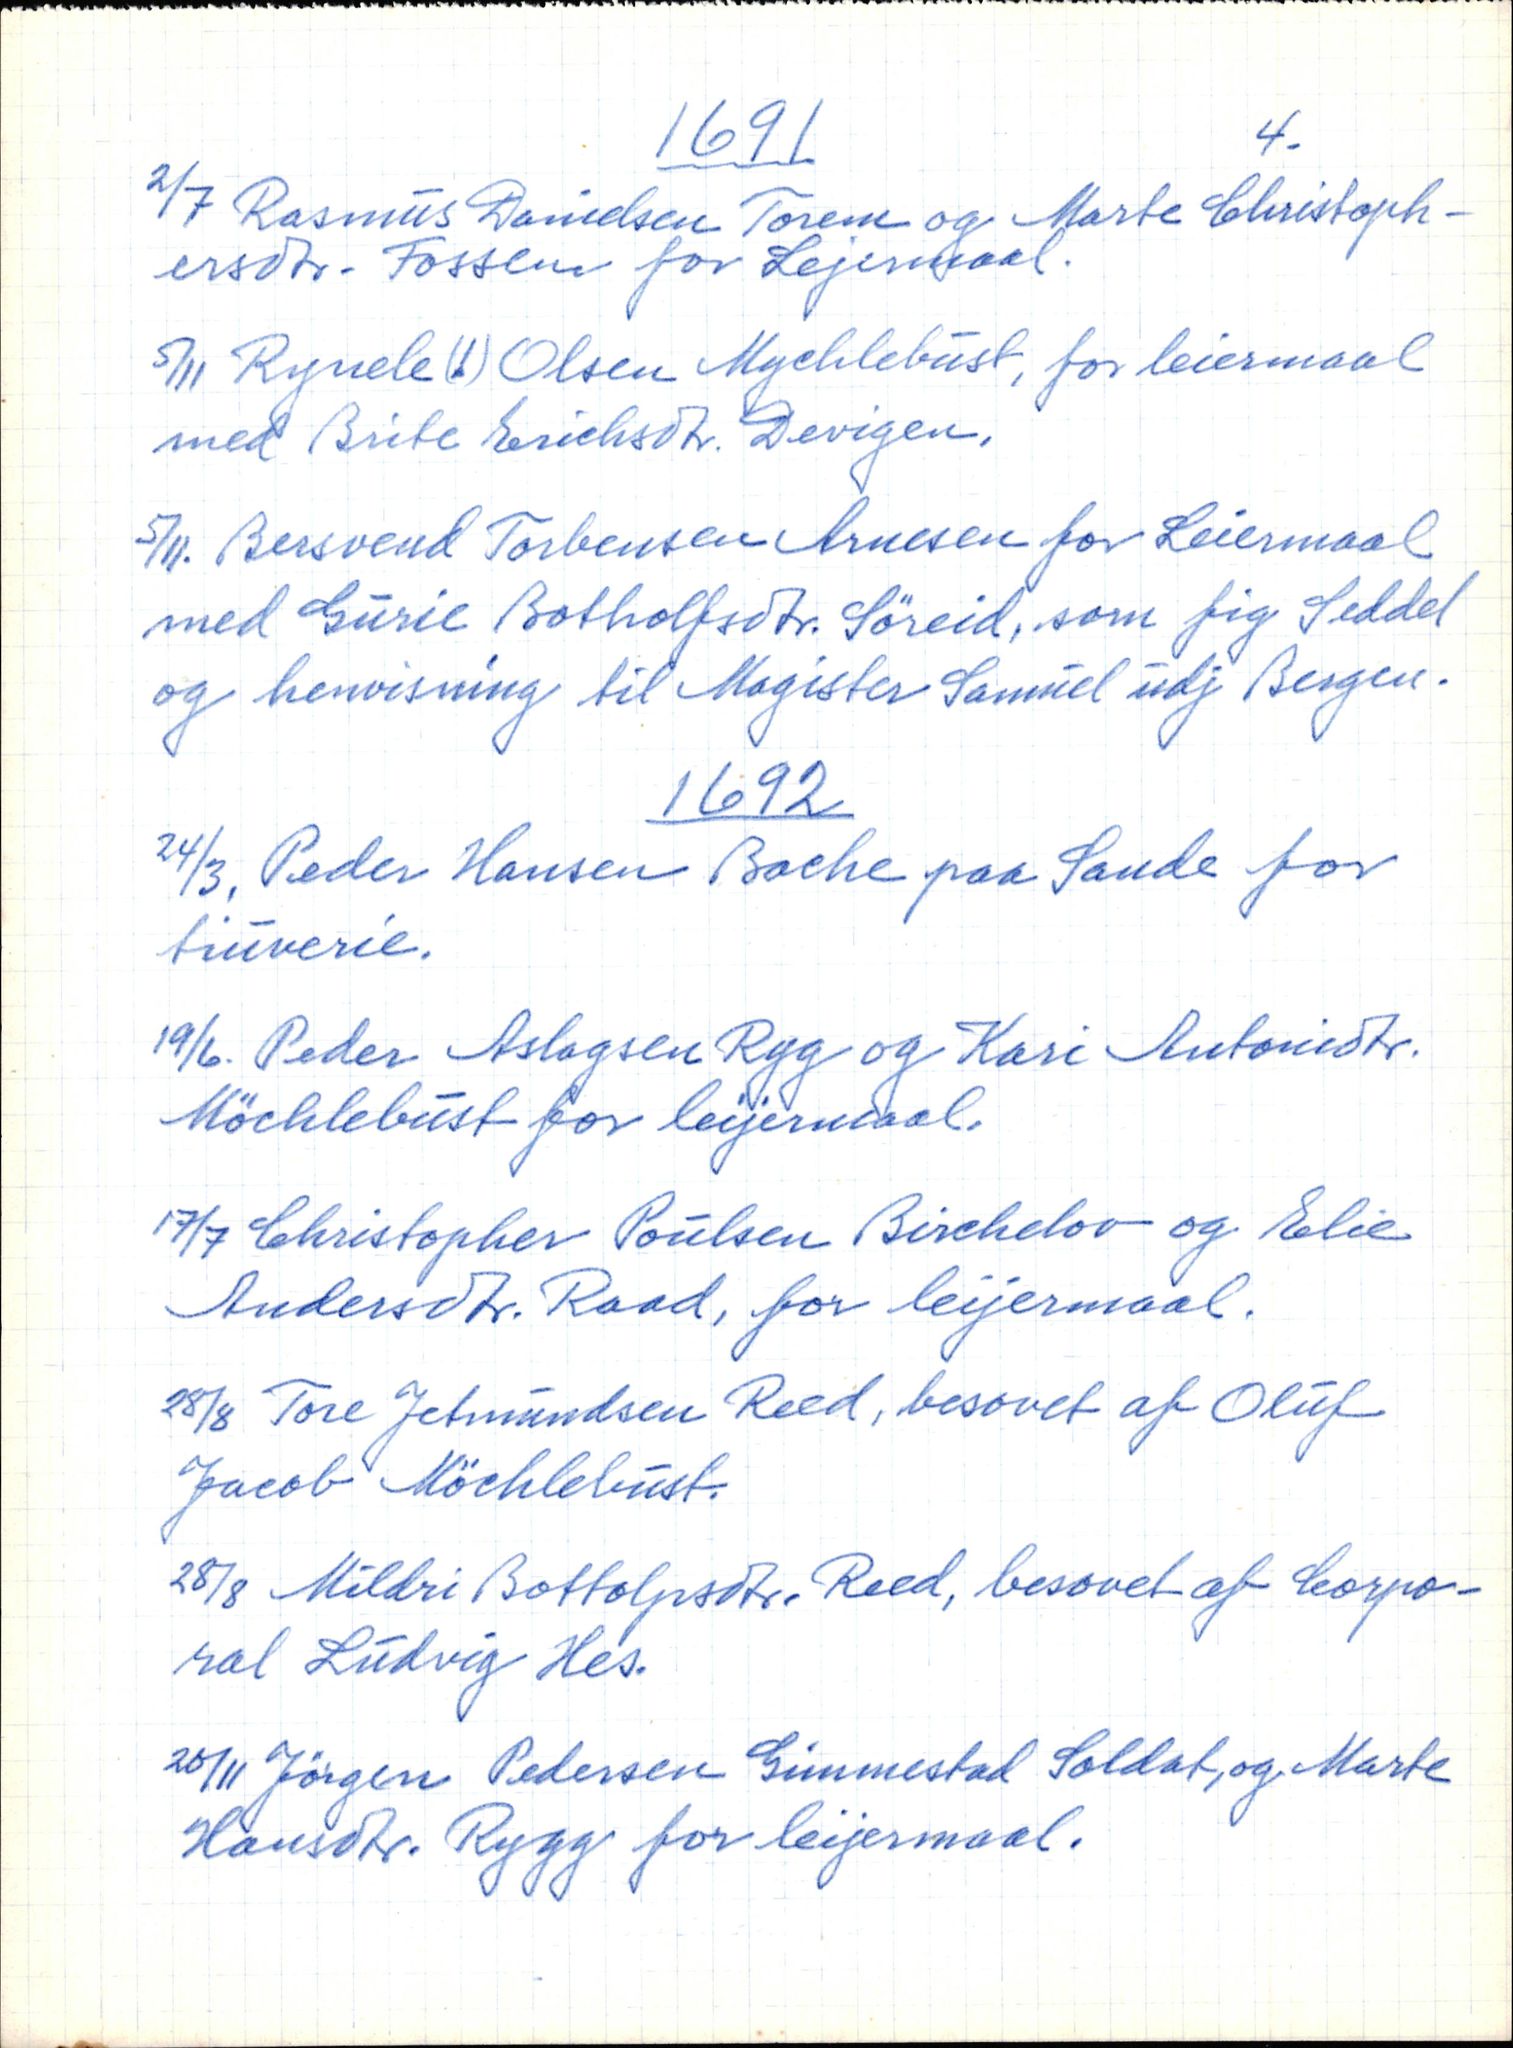 1691
4.
2/7 Rasmus Danielsen Torem og Marte Christoph-
ersdtr. Fossen for Lejermaal.
5/11 Rynele (!) Olsen Mychlebust, for leiermaal
med Brite Erichsdtr. Devigen.
5/11. Bersvend Torbensen Arnesen for Leiermaal
med Gurie Botholfsdtr. Söreid, som fig Seddel
og henvisning til Magister Samuel udj Bergen.
1692
24/3, Peder Hansen Bache paa Sande for
tiuverie.
19/6. Peder Aslagsen Ryg og Kari Antonidtr.
Möchlebust for leijermaal.
17/7 Christopher Poulsen Birchelov og Elie
Andersdtr. Raad, for leijermaal.
28/8 Tore Jetmundsen Reed, besovet af Oluf
Jacob Möchlebust.
28/8 Mildri Bottolfsdtr. Reed, besovet af Corpo-
ral Ludvig Hes.
20/11 Jörgen Pedersen Gimmestad Soldat, og Marte
Hansdtr. Rygg for leijermaal.